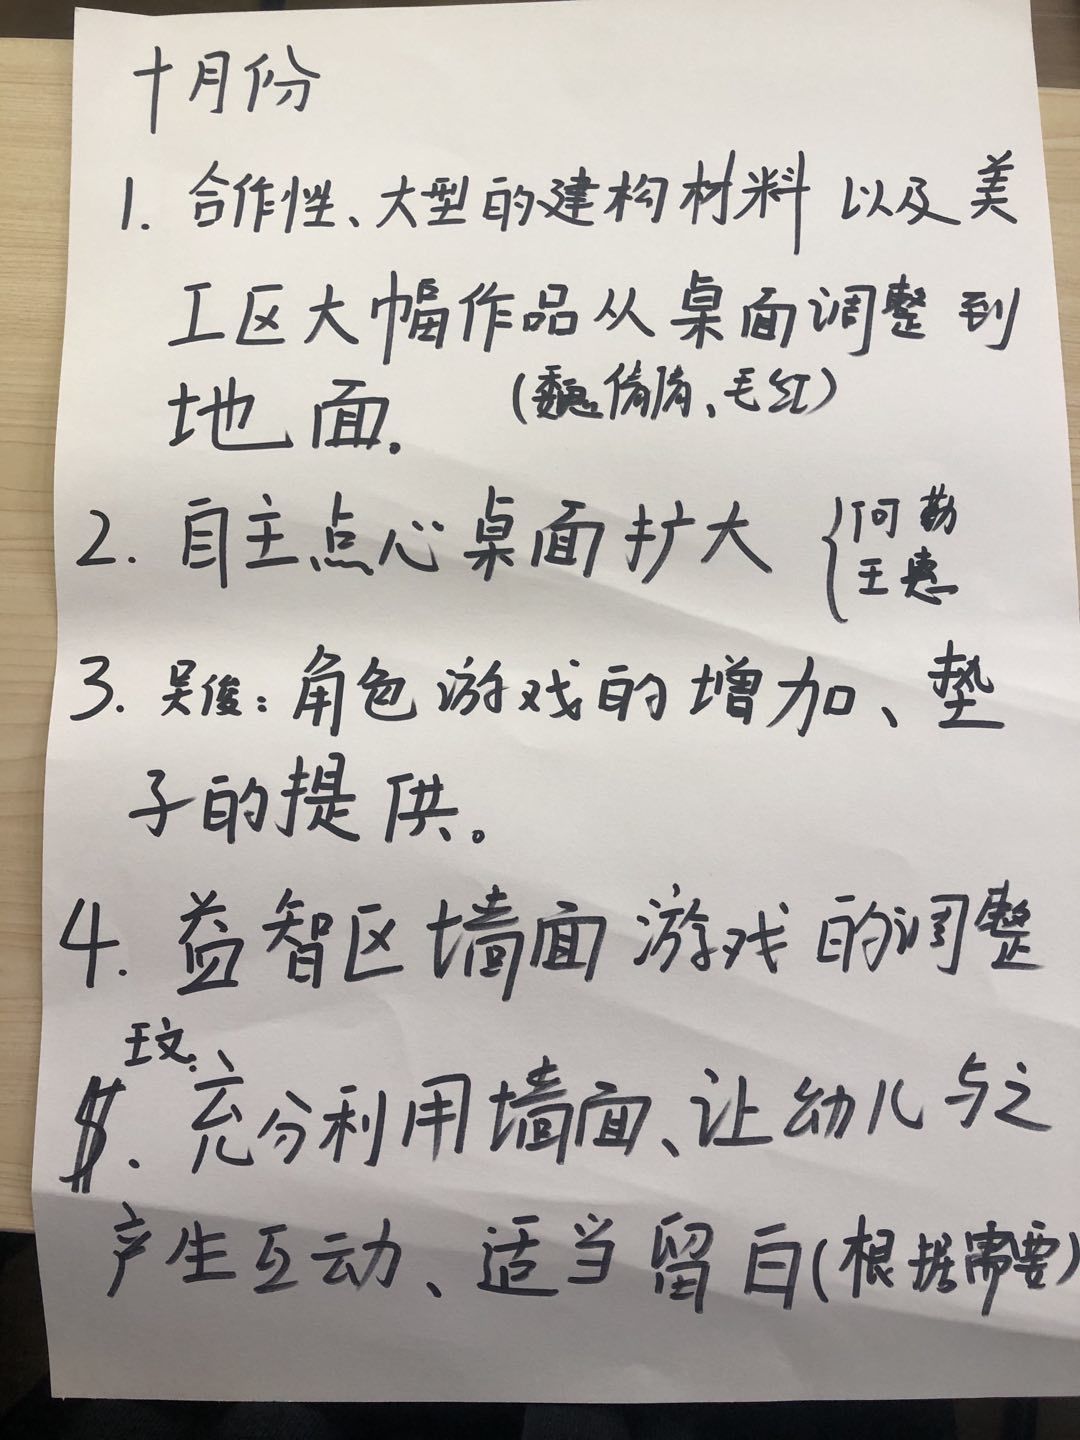 十月份
1. 合作性、大型的建构材料以及美
工区大幅作品从桌面调整到
地面。(魏倩倩、毛红)
2. 自主点心桌面扩大 {何勤
王惠
3. 吴俊：角色游戏的增加、垫
子的提供。
4. 益智区墙面游戏的调整
王文：
5. 充分利用墙面、让幼儿与之
产生互动、适当留白(根据需要)